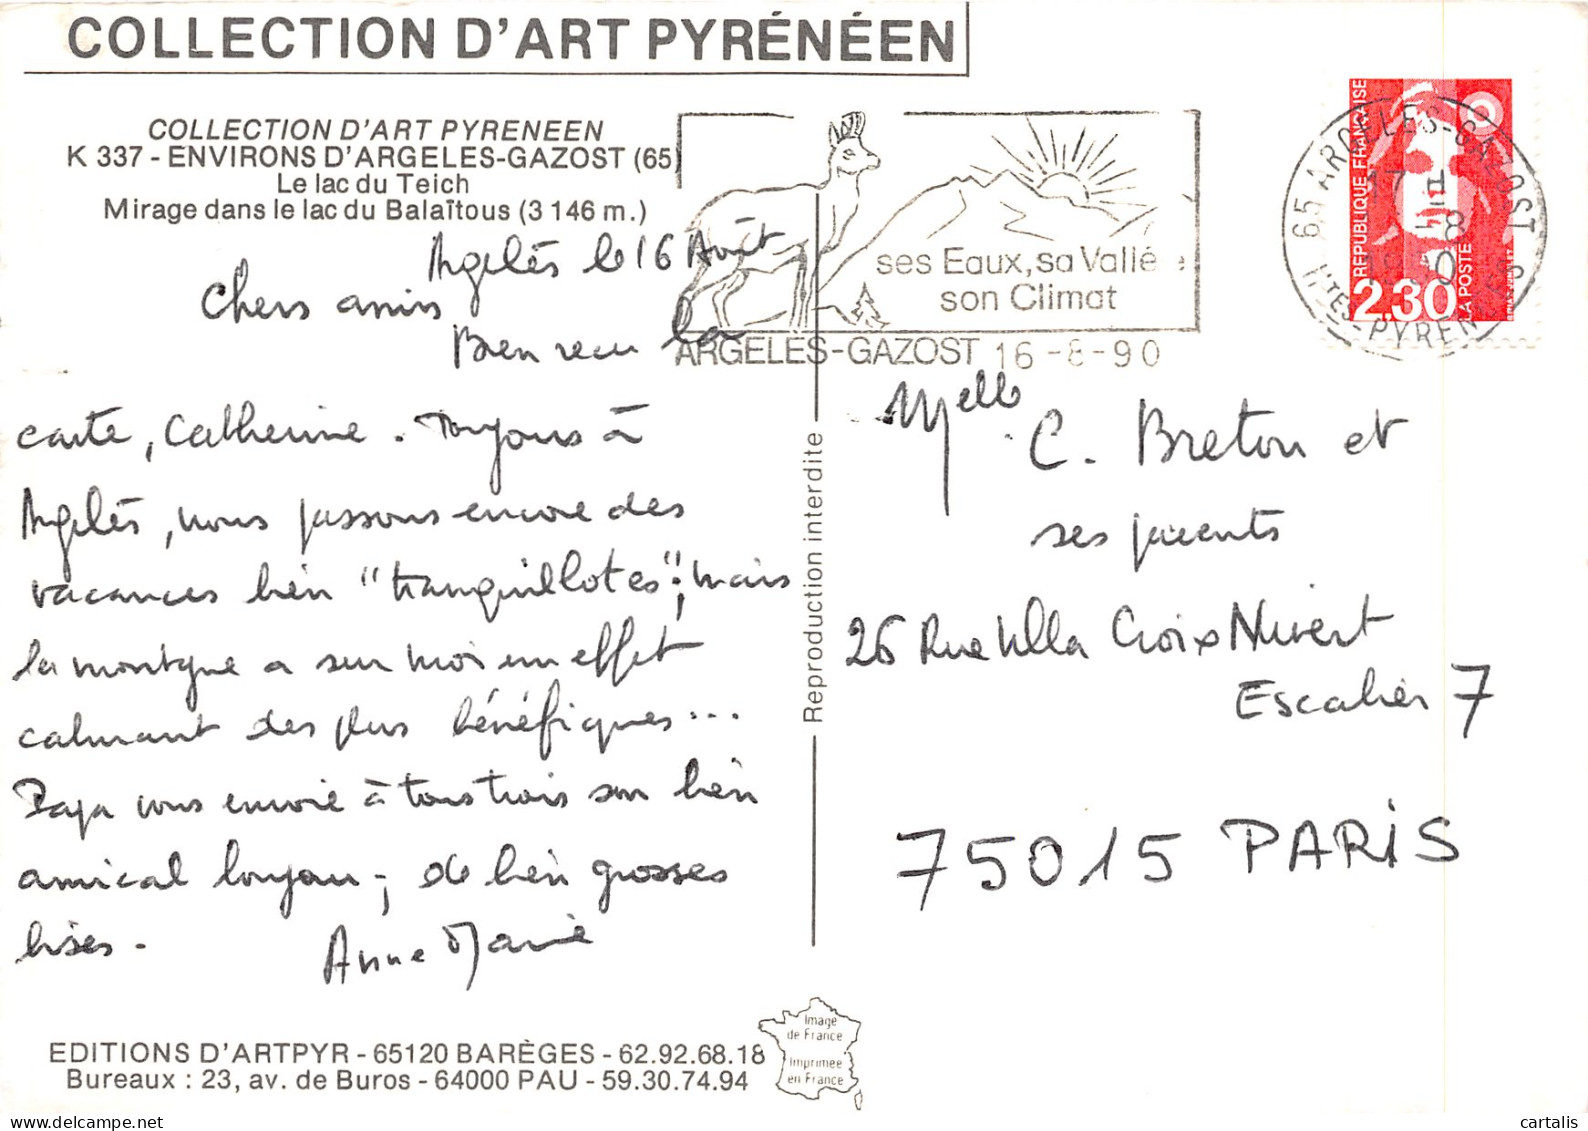 COLLECTION D'ART PYRÉNÉEN
COLLECTION D'ART PYRENEEN
K 337 - ENVIRONS D'ARGELES-GAZOST (65)
Le lac du Teich
Mirage dans le lac du Balaîtous (3 146 m.)
Argelès le 16 Août
Chers amis
Bien reçu la
carte, Catherine. Toujours à
Argelès, nous passons encore des
vacances bien "tranquillotes"; mais
la montagne a sur moi un effet
calmant des plus bénéfiques...
Papa vous envoie à tous trois son bien
amical bonjour; de bien grosses
bises.
Anne Marie
EDITIONS D'ARTPYR - 65120 BARÈGES - 62.92.68.18
Bureaux : 23, av. de Buros - 64000 PAU - 59.30.74.94
Image
de France
Imprimée
en France
Reproduction interdite
ses Eaux, sa Vallée
son Climat
ARGELÈS-GAZOST 16-8-90
65 ARGELES-GAZOST
17 H
16-8
1990
Htes-PYRENEES
REPUBLIQUE FRANÇAISE
2,30
LA POSTE
Melle C. Breton et
ses parents
26 Rue Villa Croix Nivert
Escalier 7
75015 PARIS
cartalis